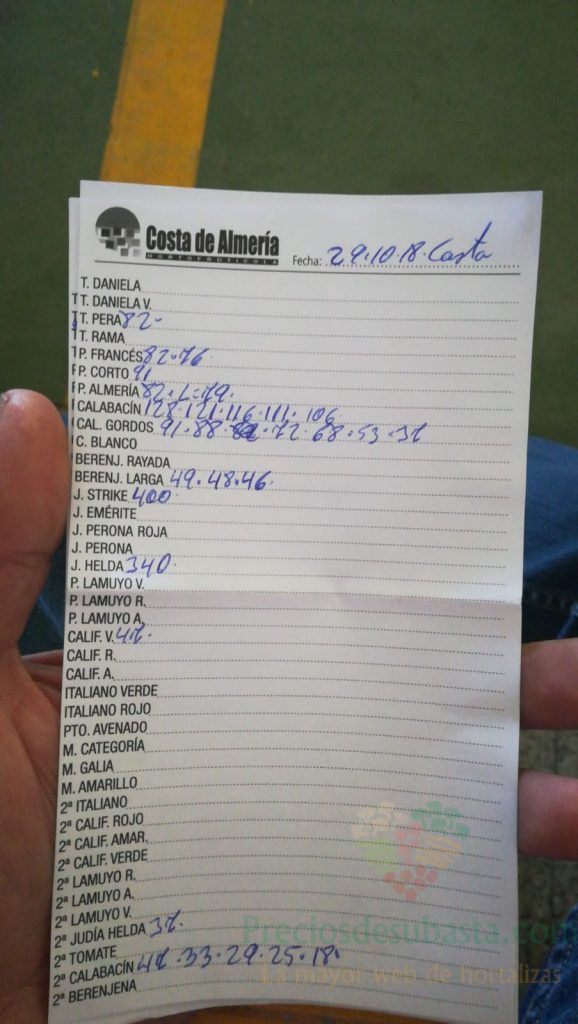 Costa de Almería
HORTOFRUTICOLA
Fecha: 29.10.18. Costa
T. DANIELA
T. DANIELA V.
T. PERA 82.
T. RAMA
P. FRANCÉS 82.76
P. CORTO 91
P. ALMERÍA 82. L=79.
CALABACÍN 128.121.116.111.106
CAL. GORDOS 91.88. 72.68.53.
C. BLANCO
BERENJ. RAYADA
BERENJ. LARGA 49.48.46.
J. STRIKE 400
J. EMÉRITE
J. PERONA ROJA
J. PERONA
J. HELDA 340.
P. LAMUYO V.
P. LAMUYO R.
P. LAMUYO A.
CALIF. V.
CALIF. R.
CALIF. A.
ITALIANO VERDE
ITALIANO ROJO
PTO. AVENADO
M. CATEGORÍA
M. GALIA
M. AMARILLO
2ª ITALIANO
2ª CALIF. ROJO
2ª CALIF. AMAR.
2ª CALIF. VERDE
2ª LAMUYO R.
2ª LAMUYO A.
2ª LAMUYO V.
2ª JUDÍA HELDA
2ª TOMATE
2ª CALABACÍN 33.29.25.18.
2ª BERENJENA
Preciosdesubasta.com
La mayor web de hortalizas